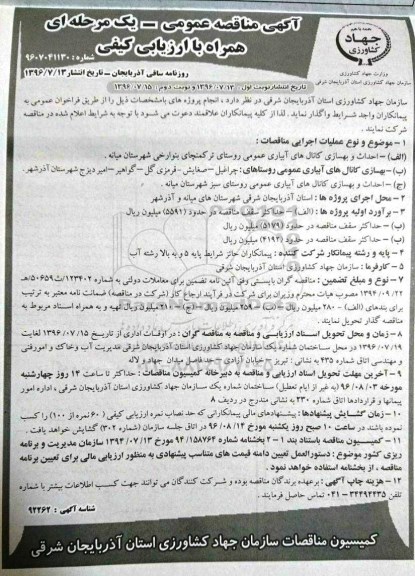 آگهی مناقصه عمومی – یک مرحله ای
همراه با ارزیابی کیفی
شماره : ۹۶۰۷۰۴۱۱۳۰
روزنامه ساقی آذربایجان – تاریخ انتشار ۱۳۹۶/۷/۱۳
جهاد
کشاورزی
وزارت جهاد کشاورزی
سازمان جهاد کشاورزی استان آذربایجان شرقی
تاریخ انتشار نوبت اول : ۱۳۹۶/۰۷/۱۳ و نوبت دوم : ۱۳۹۶/۰۷/۱۵
سازمان جهاد کشاورزی استان آذربایجان شرقی در نظر دارد ، انجام پروژه های بامشخصات ذیل را از طریق فراخوان عمومی به
پیمانکاران واجد شرایط واگذار نماید . لذا از کلیه پیمانکاران علاقمند دعوت می شود با توجه به شرایط اعلام شده در مناقصه
شرکت نمایند .
۱ – موضوع و نوع عملیات اجرایی مناقصات :
(الف) – احداث و بهسازی کانال های آبیاری عمومی روستای ترکمنچای بنوارخی شهرستان میانه .
(ب) – بهسازی کانال های آبیاری عمومی روستاهای : چراغیل – صغایش – قرمزی گل – گواهیر – امیردیزج شهرستان آذرشهر .
(ج) – احداث و بهسازی کانال های آبیاری عمومی روستای سبز شهرستان میانه .
۲ – محل اجرای پروژه ها : استان آذربایجان شرقی شهرستان های میانه و آذرشهر
۳ – برآورد اولیه پروژه ها : (الف) – حداکثر سقف مناقصه در حدود (۵۵۹۱) میلیون ریال
(ب) – حداکثر سقف مناقصه در حدود (۵۱۷۹) میلیون ریال
(ب) – حداکثر سقف مناقصه در حدود (۴۱۹۲) میلیون ریال
۴ – پایه و رشته پیمانکار شرکت کننده : پیمانکاران حائز شرایط پایه ۵ و به بالا رشته آب
۵ – کارفرما : سازمان جهاد کشاورزی استان آذربایجان شرقی
۷ – نوع و مبلغ تضمین : مناقصه گران بایستی وفق آئین نامه تضمین برای معاملات دولتی به شماره ۱۲۳۴۰۲/ت۵۰۶۵۹هـ
۱۳۹۴/۰۹/۲۲ مصوب هیات محترم وزیران برای شرکت در فرآیند ارجاع کار (شرکت در مناقصه) ضمانت نامه معتبر به ترتیب
برای بندهای (الف) – ۲۸۰ میلیون ریال – (ب) – ۲۵۹ میلیون ریال – (ج) – ۲۱۰ میلیون ریال تهیه و به همراه اسناد مربوط به
مناقصه گذار تحویل نمایند .
۸ – زمان و محل تحویل اسناد ارزیابی و مناقصه به مناقصه گران : در اوقات اداری از تاریخ ۱۳۹۶/۰۷/۱۵ لغایت
۱۳۹۶/۰۷/۱۹ در محل ساختمان شماره یک سازمان جهاد کشاورزی استان آذربایجان شرقی مدیریت آب وخاک و امورفنی
و مهندسی اتاق شماره ۴۳۵ به نشانی : تبریز – خیابان آزادی – حد فاصل میدان جهاد و لاله
۹ – آخرین مهلت تحویل اسناد ارزیابی و مناقصه به دبیرخانه کمیسیون مناقصات : حداکثر تا ساعت ۱۴ روز چهارشنبه
مورخه ۹۶/۰۸/۰۳ (به غیر از ایام تعطیل) ساختمان شماره یک سازمان جهاد کشاورزی استان آذربایجان شرقی ، اداره امور
پیمانها و قراردادها اتاق شماره ۲۳۰ به نشانی مندرج در ردیف ۸
۱۰ – زمان گشایش پیشنهادها : پیشنهادهای مالی پیمانکارانی که حد نصاب نمره ارزیابی کیفی (۶۰ نمره از ۱۰۰) را کسب
نموده باشند در ساعت ۱۰ صبح روز یکشنبه مورخ ۹۶/۰۸/۱۴ در اتاق جلسه سازمان (شماره ۳۰۲) گشایش خواهد یافت .
۱۱ – کمیسیون مناقصه باستناد بند ۱–۲ بخشنامه شماره ۹۴/۱۵۸۷۶۴ مورخ ۱۳۹۴/۰۷/۱۳ سازمان مدیریت و برنامه
ریزی کشور موضوع : دستورالعمل تعیین دامنه قیمت های متناسب پیشنهادی به منظور ارزیابی مالی برای تعیین برنده
مناقصه ، از بخشنامه استفاده خواهد نمود .
۱۲ – هزینه چاپ آگهی : برعهده برندگان مناقصه بوده و شرکت کنندگان می توانند جهت کسب اطلاعات بیشتر با شماره
تلفن ۳۴۴۹۲۴۳۵ – ۰۴۱ تماس حاصل فرمایند .
شناسه آگهی : ۹۴۲۶۲
کمیسیون مناقصات سازمان جهاد کشاورزی استان آذربایجان شرقی